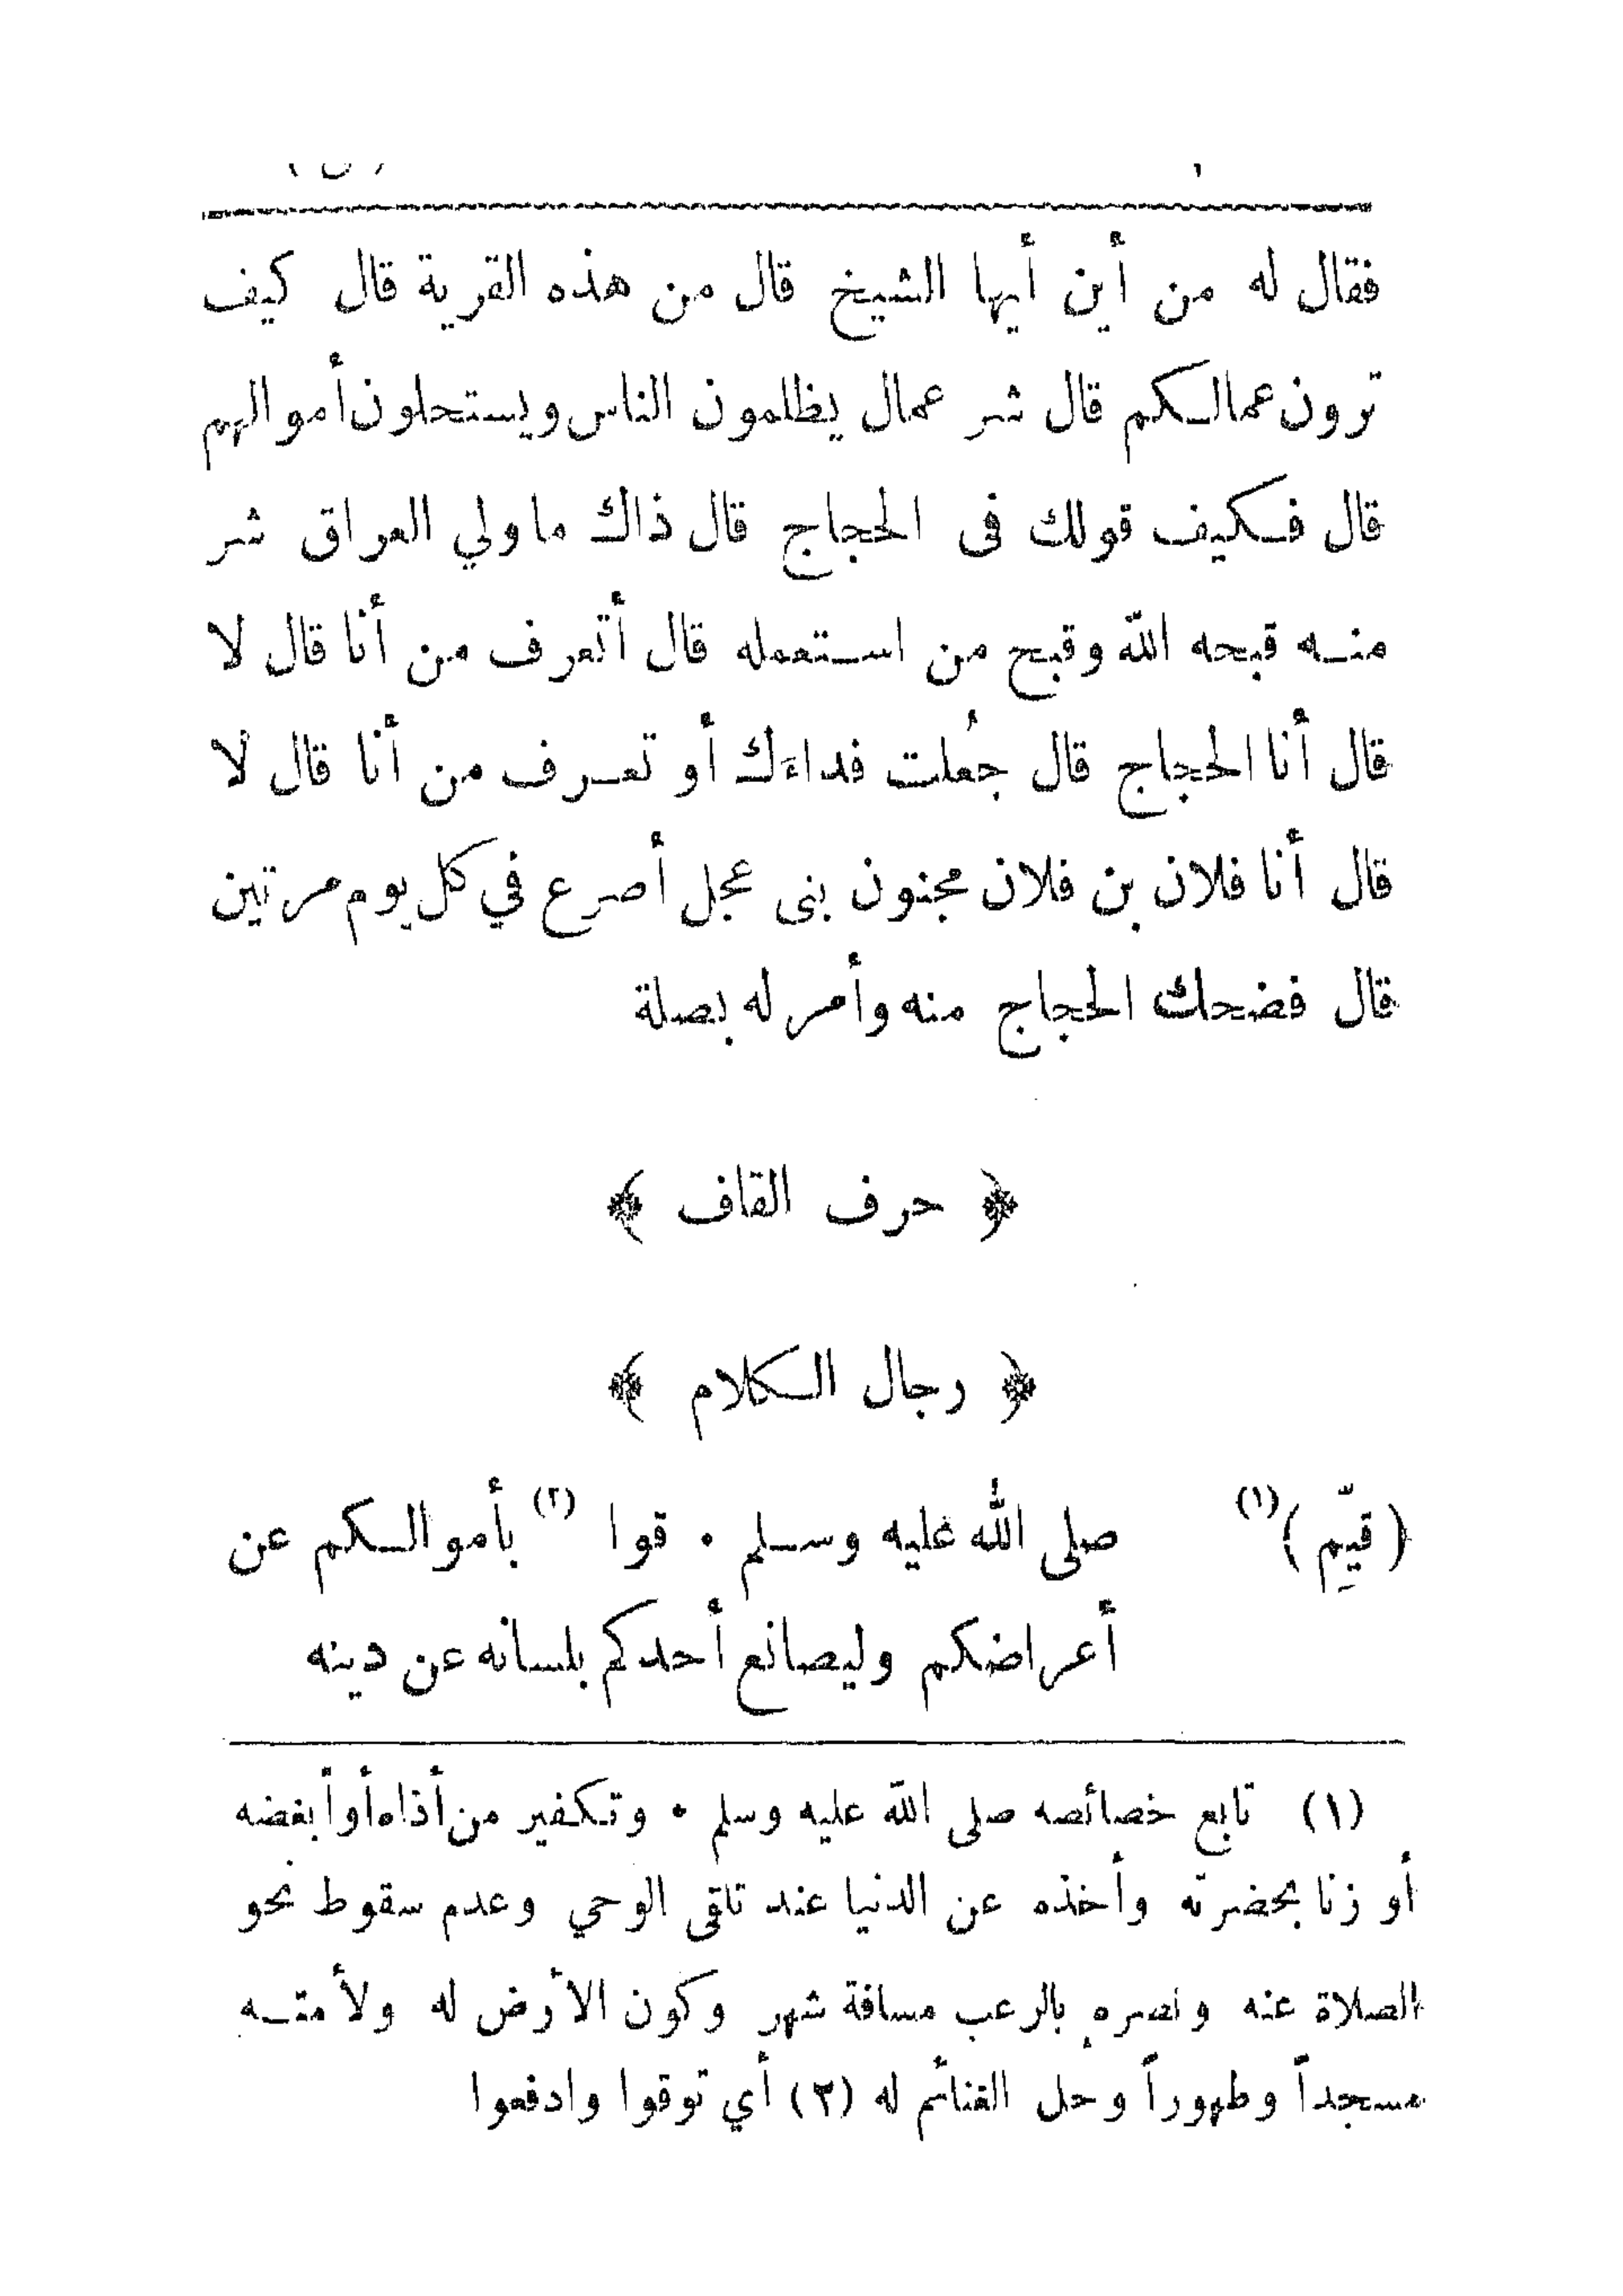 فقال له من أين أيها الشيخ قال من هذه القرية قال كيف
ترون عمالكم قال شر عمال يظلمون الناس ويستحلون أموالهم
قال فكيف قولك فى الحجاج قال ذاك ما ولي العراق شر
منه قبحه الله وقبح من استعمله قال أتعرف من أنا قال لا
قال أنا الحجاج قال جُعلت فداءَك أو تعرف من أنا قال لا
قال أنا فلان بن فلان مجنون بنى عجل أصرع في كل يوم مرتين
قال فضحك الحجاج منه وأمر له بصلة
﴿ حرف القاف ﴾
﴿ رجال الكلام ﴾
(قيّمِ)(١) صلى الله عليه وسلم • قوا (٢) بأموالكم عن
أعراضكم وليصانع أحدكم بلسانه عن دينه
(١) تابع خصائصه صلى الله عليه وسلم • وتكفير من أذاه أو أبغضه
أو زنا بحضرته وأخذه عن الدنيا عند تلقى الوحي وعدم سقوط نحو
الصلاة عنه ونصره بالرعب مسافة شهر وكون الأرض له ولأمته
مسجداً وطهوراً وحل الغنائم له (٢) أي توقوا وادفعوا